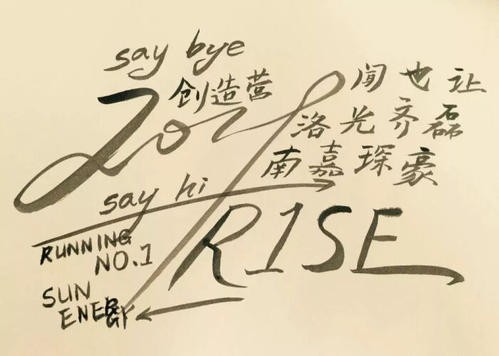 say bye
创造营
2021
闻也让
洛光齐磊
南嘉琛豪
say hi
R1SE
RUNNING
NO.1
SUN
ENERGY